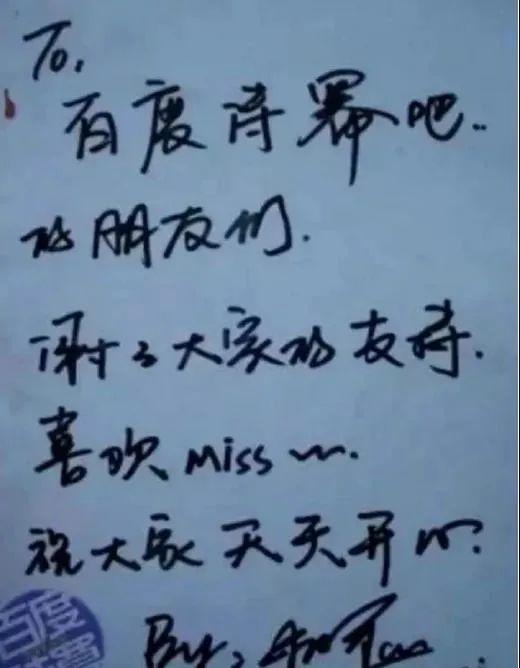 To,
百度诗幂吧..
的朋友们.
谢谢大家的支持.
喜欢 miss~.
祝大家天天开心.
By,
百度